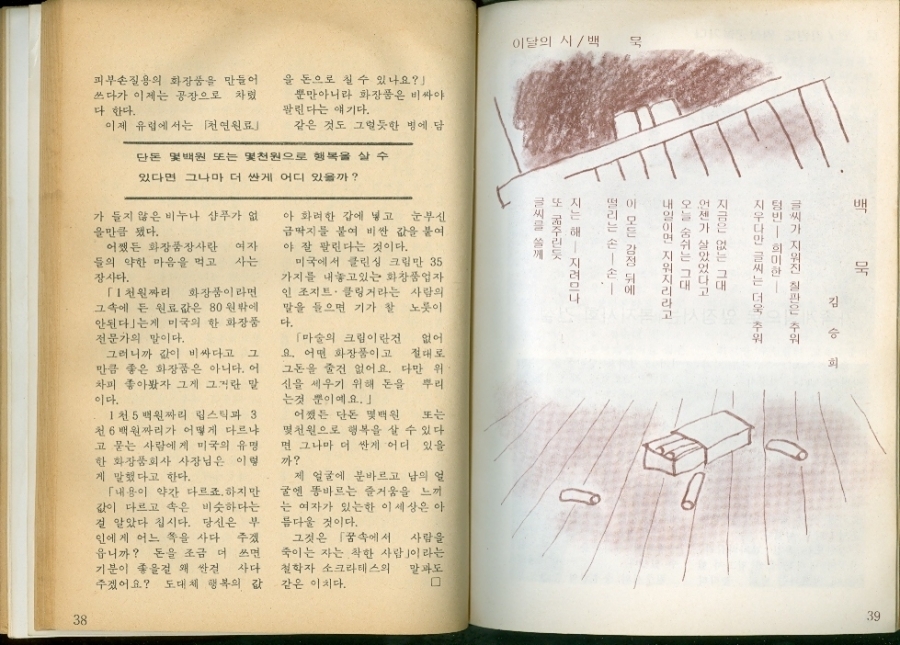 피부손질용의 화장품을 만들어
쓰다가 이제는 공장으로 차렸
다 한다.
이제 유럽에서는 「천연원료」
을 돈으로 칠 수 있나요?」
뿐만아니라 화장품은 비싸야
팔린다는 얘기다.
같은 것도 그럴듯한 병에 담
단돈 몇백원 또는 몇천원으로 행복을 살 수
있다면 그나마 더 싼게 어디 있을까?
가 들지않은 비누나 샴푸가 없
을만큼 됐다.
어쨌든 화장품장사란 여자
들의 약한 마음을 먹고 사는
장사다.
「1천원짜리 화장품이라면
그속에 든 원료값은 80원밖에
안된다」는게 미국의 한 화장품
전문가의 말이다.
그러니까 값이 비싸다고 그
만큼 좋은 화장품은 아니다. 어
차피 좋아봤자 그게 그거란 말
이다.
1천5백원짜리 립스틱과 3
천6백원짜리가 어떻게 다르냐
고 묻는 사람에게 미국의 유명
한 화장품회사 사장님은 이렇
게 말했다고 한다.
「내용이 약간 다르죠.하지만
값이 다르고 속은 비슷하다는
걸 알았다 칩시다. 당신은 부
인에게 어느 쪽을 사다 주겠
읍니까? 돈을 조금 더 쓰면
기분이 좋을걸 왜 싼걸 사다
주겠어요? 도대체 행복의 값
아 화려한 갑에 넣고 눈부신
금딱지를 붙여 비싼 값을 붙여
야 잘 팔린다는 것이다.
미국에서 클린싱 크림만 35
가지를 내놓고있는 화장품업자
인 조지트·클링거라는 사람의
말을 들으면 기가 찰 노릇이
다.
「마술의 크림이란건 없어
요. 어떤 화장품이고 절대로
그돈을 줄건 없어요. 다만 위
신을 세우기 위해 돈을 뿌리
는것 뿐이예요.」
어쨌든 단돈 몇백원 또는
몇천원으로 행복을 살 수 있다
면 그나마 더 싼게 어디 있을
까?
제 얼굴에 분바르고 남의 얼
굴엔 똥바르는 즐거움을 느끼
는 여자가 있는한 이세상은 아
름다울 것이다.
그것은 「꿈속에서 사람을
죽이는 자는 착한 사람」이라는
철학자 소크라테스의 말과도
같은 이치다. □
38
이달의 시/백 묵
백 묵
김 승 희
글씨가 지워진 칠판은 추워
텅빈— 희미한—
지우다만 글씨는 더욱 추워
지금은 없는 그대
언젠가 살았었다고
오늘 숨쉬는 그대
내일이면 지워지리라고
이 모든 감정 뒤에
떨리는 손—손—
지는 해—지려므나
또 굶주린듯
글씨를 쓸께
39